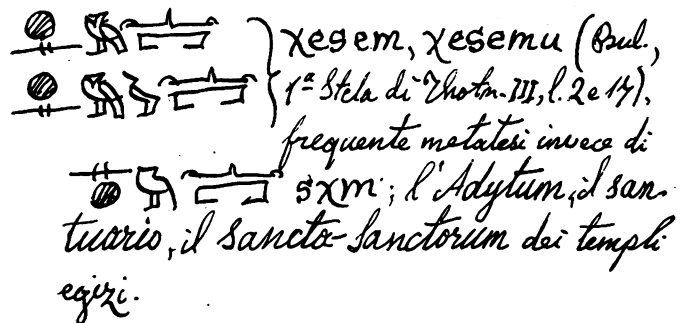 χesem, χesemu (Bul.,
1ª Stela di Thotm. III, l. 2 e 17),
frequente metatesi invece di
sχm; l'Adytum, il san-
tuario, il sancta-sanctorum dei templi
egizi.